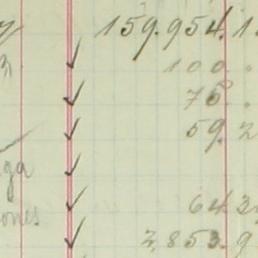 159.954.1
100.
75.
59.2
ga
ones 64.3
2.853.9